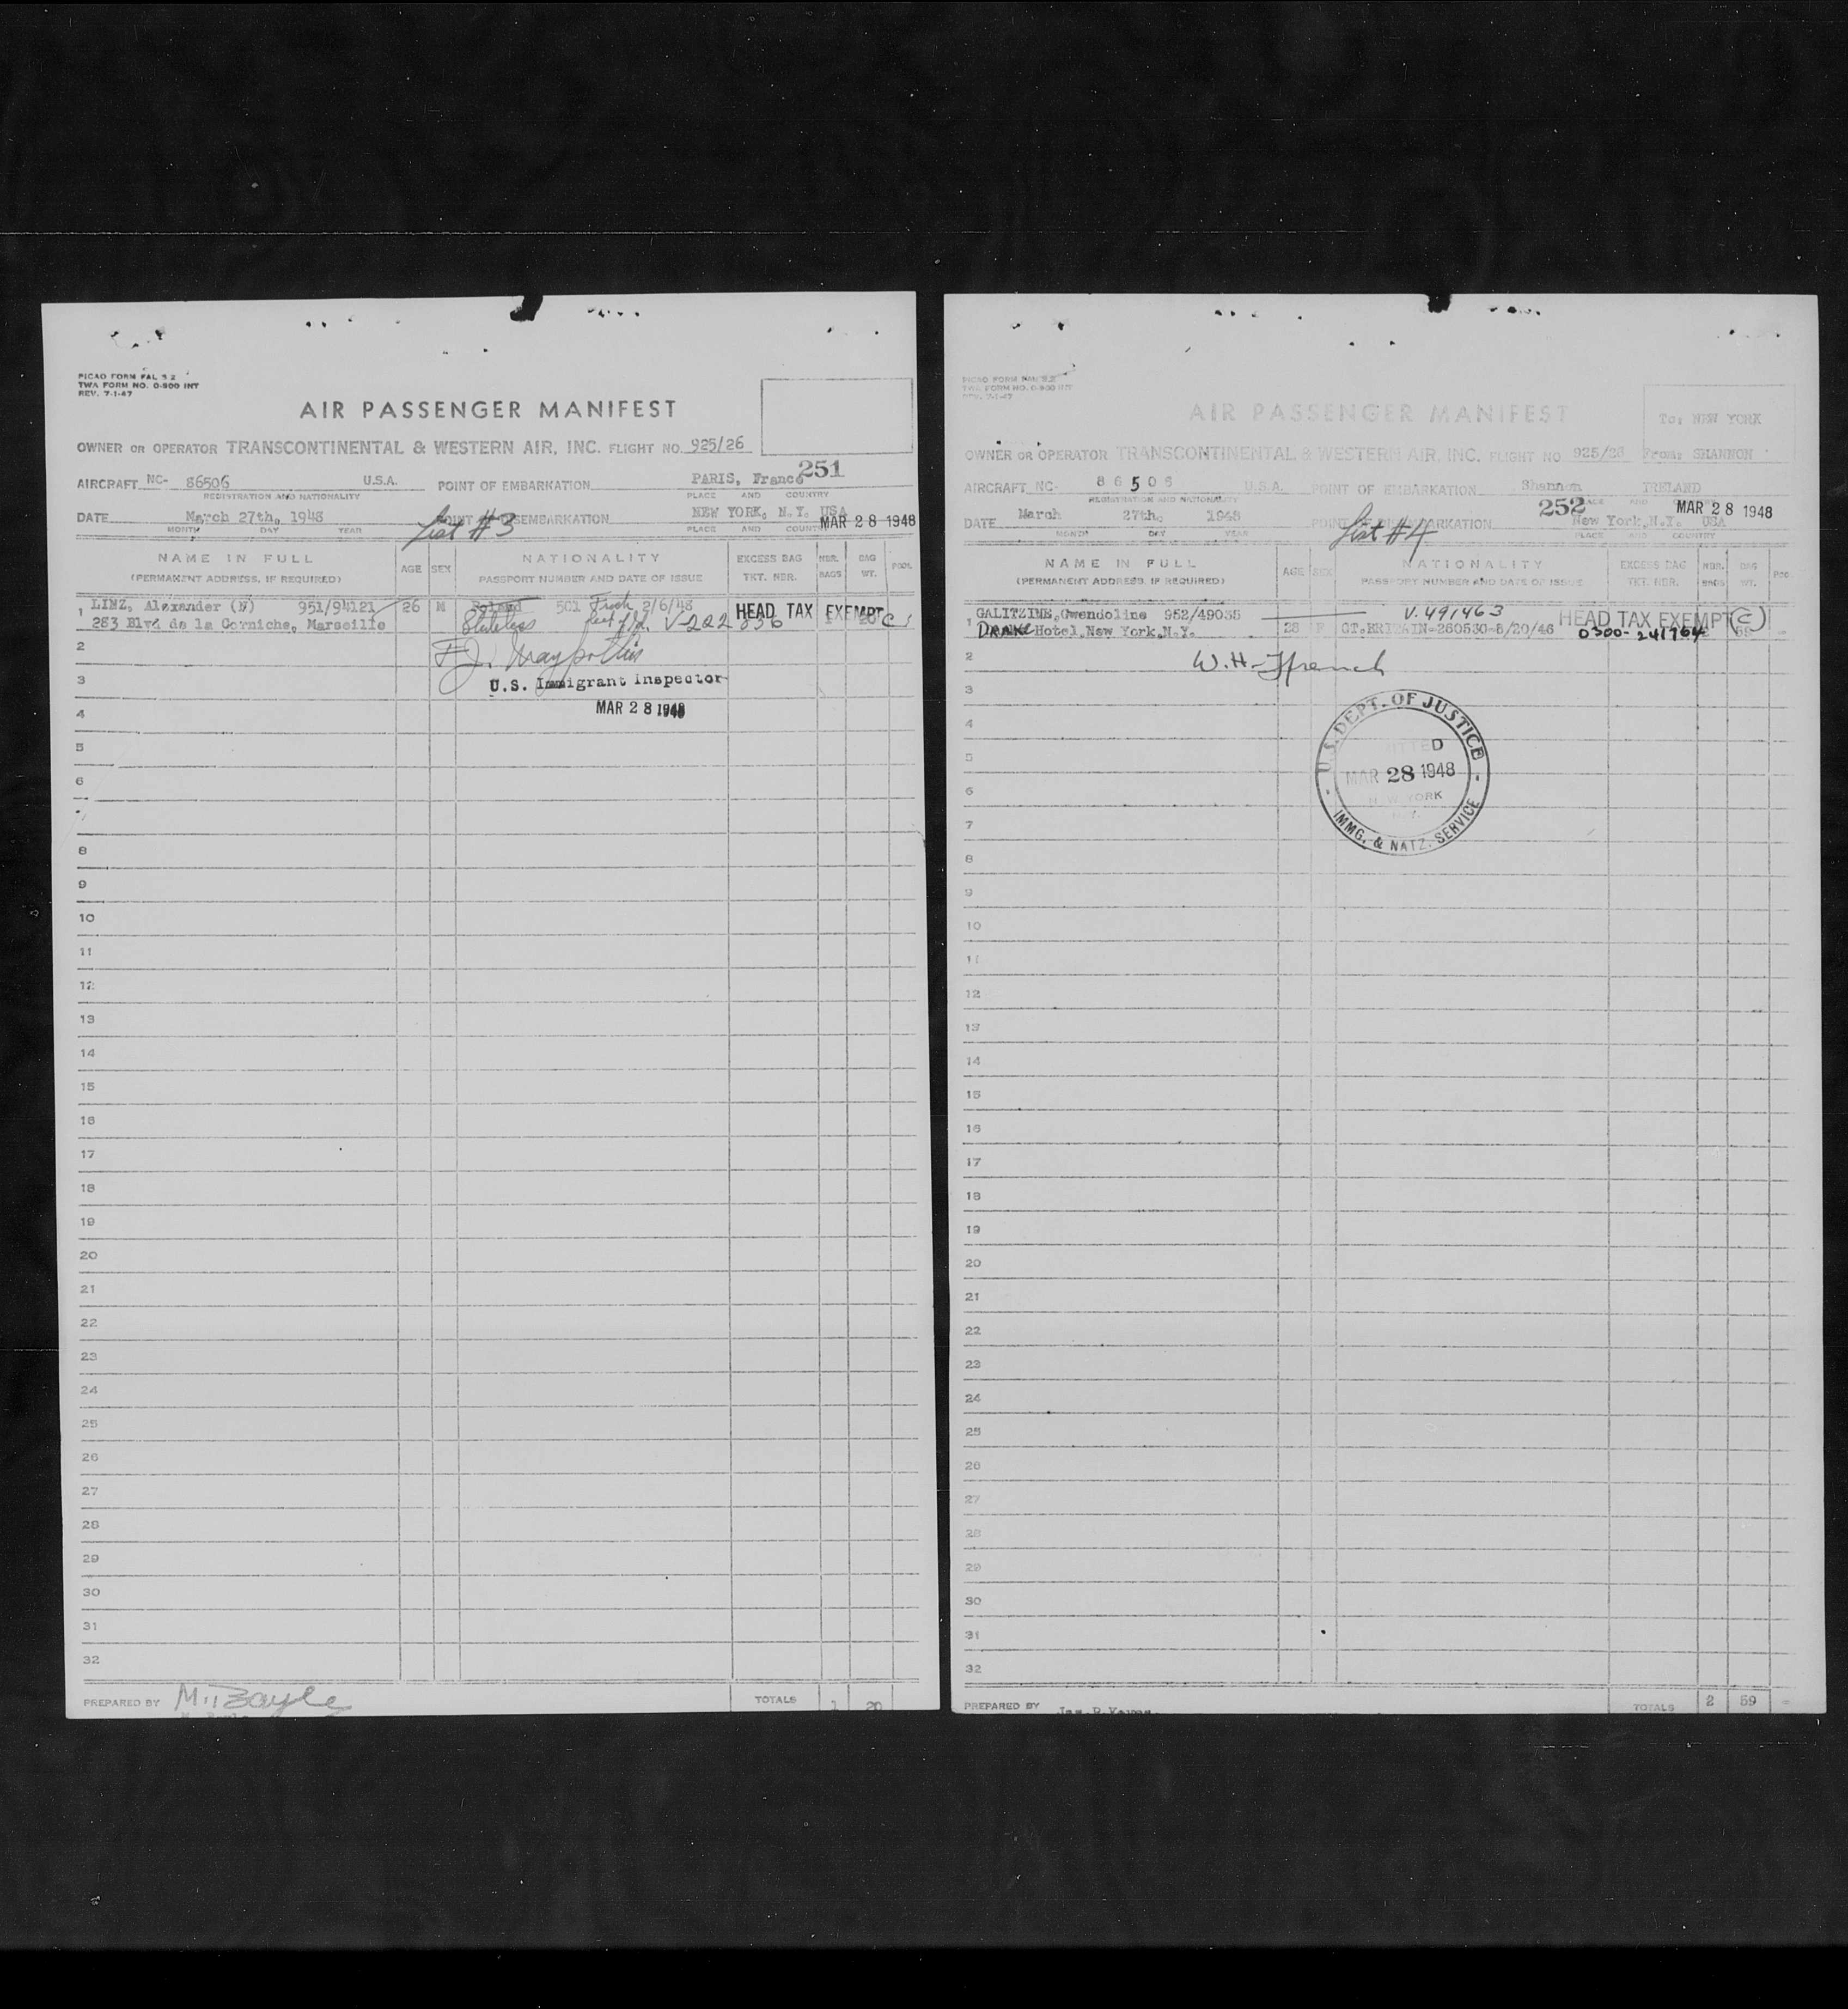 PICAO FORM FAL S 2
TWA FORM NO. O-800 INT
REV. 7-1-47
AIR PASSENGER MANIFEST
OWNER OR OPERATOR TRANSCONTINENTAL & WESTERN AIR, INC. FLIGHT NO. 925/26
251
AIRCRAFT NC- 86506 U.S.A. POINT OF EMBARKATION PARIS, France
REGISTRATION AND NATIONALITY PLACE AND COUNTRY
DATE March 27th, 1948 List #3 POINT OF DISEMBARKATION NEW YORK, N.Y. USA
MONTH DAY YEAR PLACE AND COUNTRY MAR 28 1948
NAME IN FULL
(PERMANENT ADDRESS, IF REQUIRED)
AGE SEX
NATIONALITY
PASSPORT NUMBER AND DATE OF ISSUE
EXCESS BAG TKT. NBR.
NBR. BAGS
BAG WT.
POOL
1 LINZ, Alexander 951/94121 26 M Poland 501 2/6/48 HEAD TAX EXEMPT
283 Blvd de la Corniche, Marseille Stateless V-222 836 20 C
2
3 U.S. Immigrant Inspector
4 MAR 28 1948
5
6
7
8
9
10
11
12
13
14
15
16
17
18
19
20
21
22
23
24
25
26
27
28
29
30
31
32
PREPARED BY M. Bayle TOTALS 1 20
AIR PASSENGER MANIFEST
To: NEW YORK
OWNER OR OPERATOR TRANSCONTINENTAL & WESTERN AIR, INC. FLIGHT NO 925/26 From: SHANNON
AIRCRAFT NC- 86506 U.S.A. POINT OF EMBARKATION Shannon IRELAND
REGISTRATION AND NATIONALITY 252 PLACE AND MAR 28 1948
DATE March 27th, 1948 List #4 POINT OF DISEMBARKATION New York,N.Y. USA
MONTH DAY YEAR PLACE AND COUNTRY
NAME IN FULL
(PERMANENT ADDRESS, IF REQUIRED)
AGE SEX
NATIONALITY
PASSPORT NUMBER AND DATE OF ISSUE
EXCESS BAG TKT. NBR.
NBR. BAGS
BAG WT.
1 GALITZINE,Gwendoline 952/49035 V.491463 HEAD TAX EXEMPT (C)
DRAKE Hotel,New York,N.Y. 28 F GT.BRITAIN-260530-8/20/46 0300-241764
2 W.H. Ffrench
3
4 U.S. DEPT. OF JUSTICE
5 MAR 28 1948
6 NEW YORK
7 IMMG. & NATZ. SERVICE
8
9
10
11
12
13
14
15
16
17
18
19
20
21
22
23
24
25
26
27
28
29
30
31
32
PREPARED BY TOTALS 2 59